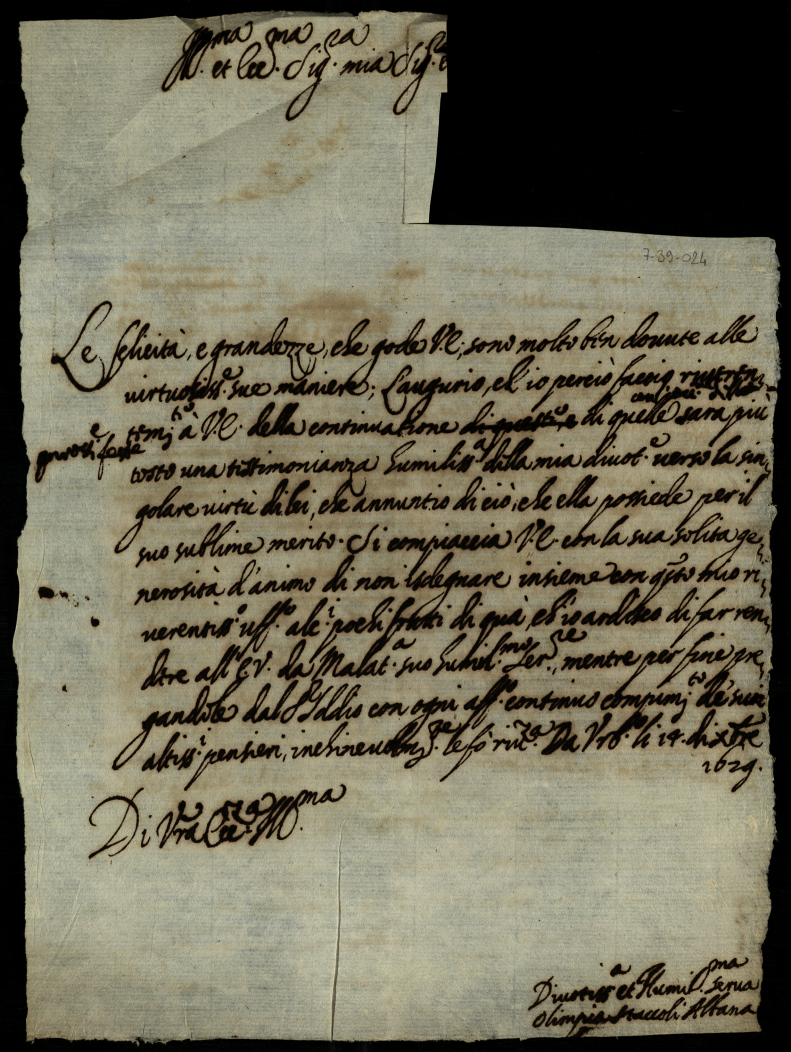 Ill.ma et Ecc.ma Sig.ra mia Sig.
7-39-024
Le felicità, e grandezze, che gode V.E., sono molto ben dovute alle
virtuosiss.e sue maniere; L'augurio, ch'io perciò faccio
à V.E. della continuatione di quelle sara più
tosto una testimonianza humiliss.a della mia divot.e verso la sin,
golare virtù di lei, che annuntio di ciò, che ella possiede per il
suo sublime merito. Si compiaccia V.E. con la sua solita ge,
nerosità d'animo di non isdegnare insieme con q̃sto mio ri,
verentiss.o uff.o alc.i pochi frutti di quà, ch'io ardisco di far ren,
dere all'E.V. da Malat.a suo humil.mo Ser.re, mentre per fine pre,
gandole dal S. Iddio con ogni aff.o continuo compim.to de suoi
altiss.i pensieri, inchinevolm.te le fò riv.za. Da Urb.o li 14. di Xbre
1629.
Di Vr̃a Ecc.za Ill.ma
Divotiss.a et Humil.ma serva
Olimpia Staccoli Albana